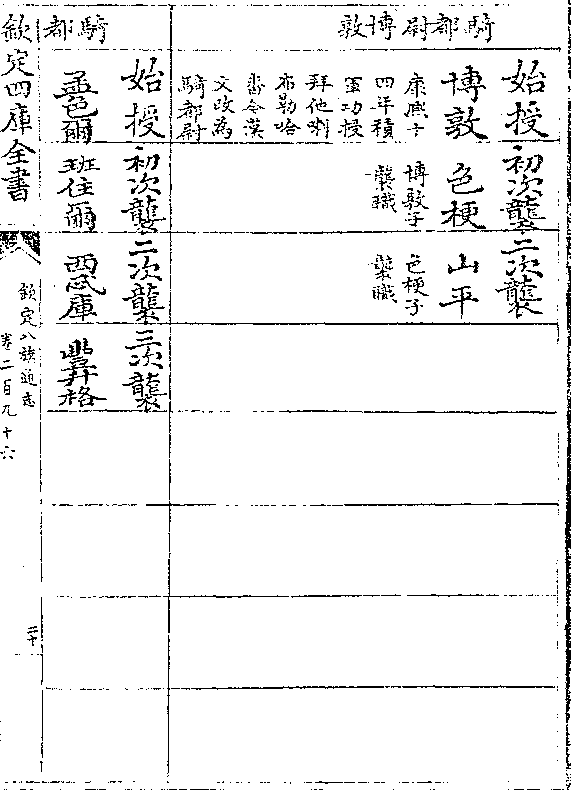 騎都尉博敦
始授
博敦
康熙三十
四年積
軍功授
拜他喇
布勒哈
番今漢
文改為
騎都尉
初次襲
色梗
博敦子
襲職
二次襲
山平
色梗子
襲職
騎都
始授
孟色爾
初次襲
班住爾
二次襲
西忒庫
三次襲
豐昇格
欽定四庫全書
欽定八旗通志
卷二百九十六